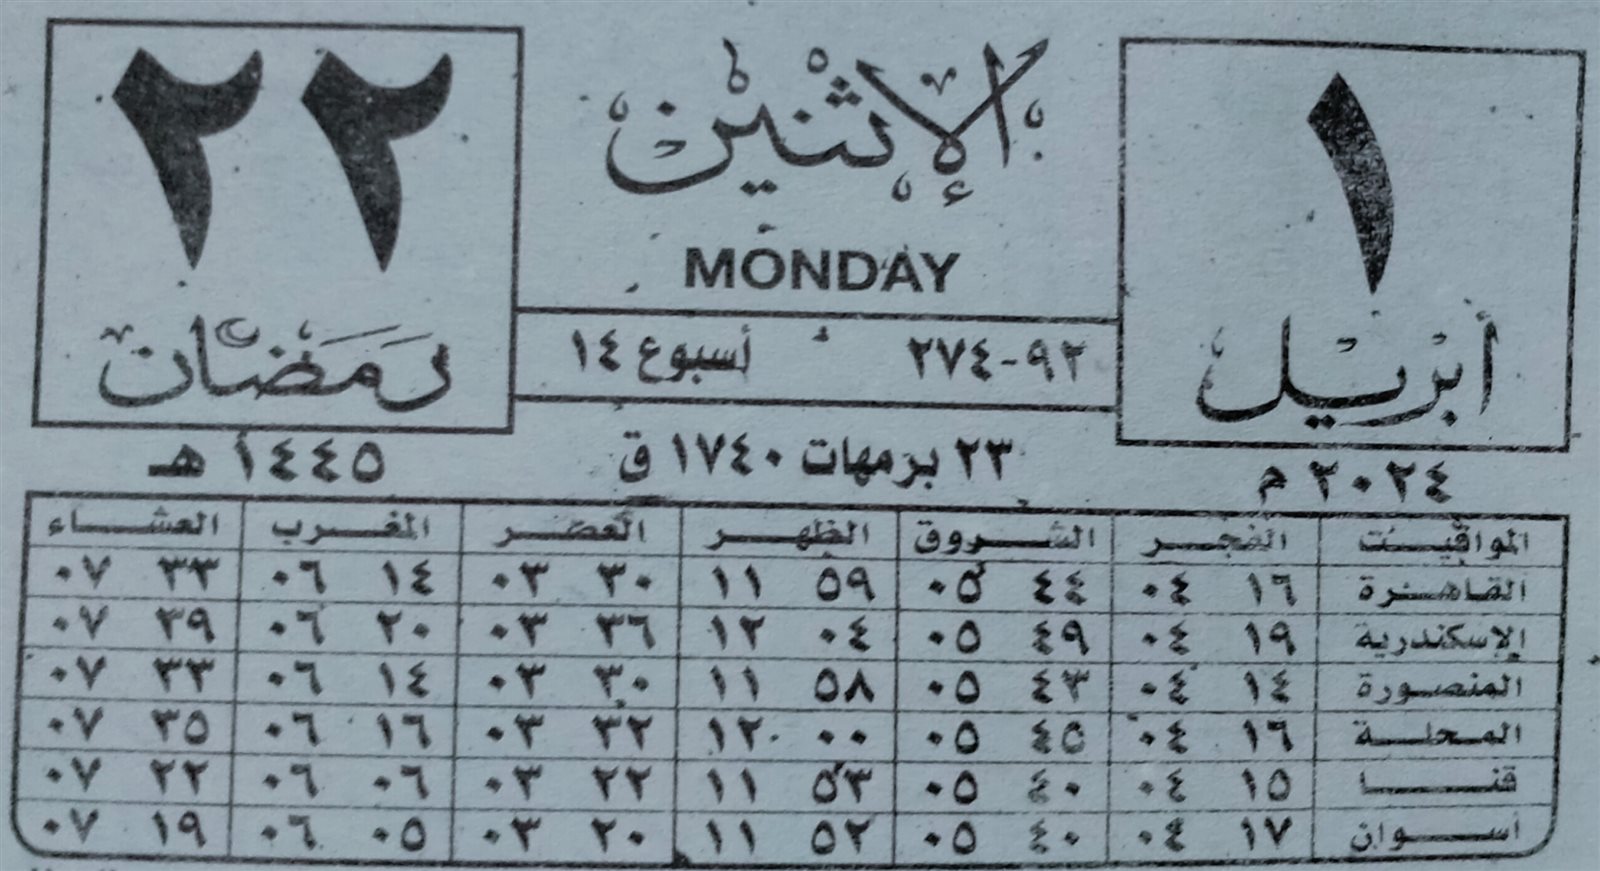 ١
أبريل
٢٠٢٤ م
الإثنين
MONDAY
٩٢-٢٧٤ أسبوع ١٤
٢٣ برمهات ١٧٤٠ ق
٢٢
رمضان
١٤٤٥ هـ
المواقيت الفجر الشروق الظهر العصر المغرب العشاء
القاهرة ١٦ ٠٤ ٤٤ ٠٥ ٥٩ ١١ ٣٠ ٠٣ ١٤ ٠٦ ٣٣ ٠٧
الإسكندرية ١٩ ٠٤ ٤٩ ٠٥ ٠٤ ١٢ ٣٦ ٠٣ ٢٠ ٠٦ ٣٩ ٠٧
المنصورة ١٤ ٠٤ ٤٣ ٠٥ ٥٨ ١١ ٣٠ ٠٣ ١٤ ٠٦ ٣٣ ٠٧
المحلة ١٦ ٠٤ ٤٥ ٠٥ ٠٠ ١٢ ٣٢ ٠٣ ١٦ ٠٦ ٣٥ ٠٧
قنا ١٥ ٠٤ ٤٠ ٠٥ ٥٣ ١١ ٢٢ ٠٣ ٠٦ ٠٦ ٢٢ ٠٧
أسوان ١٧ ٠٤ ٤٠ ٠٥ ٥٢ ١١ ٢٠ ٠٣ ٠٥ ٠٦ ١٩ ٠٧